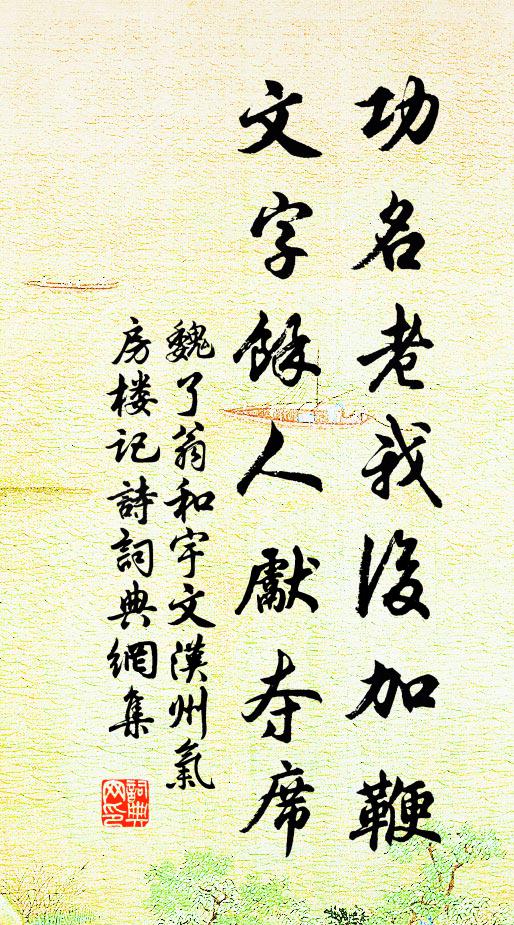 功名老我後加鞭
文字餘人獻夺席
魏了翁和宇文漢州氣
房楼记詩詞典網集
詞典网印